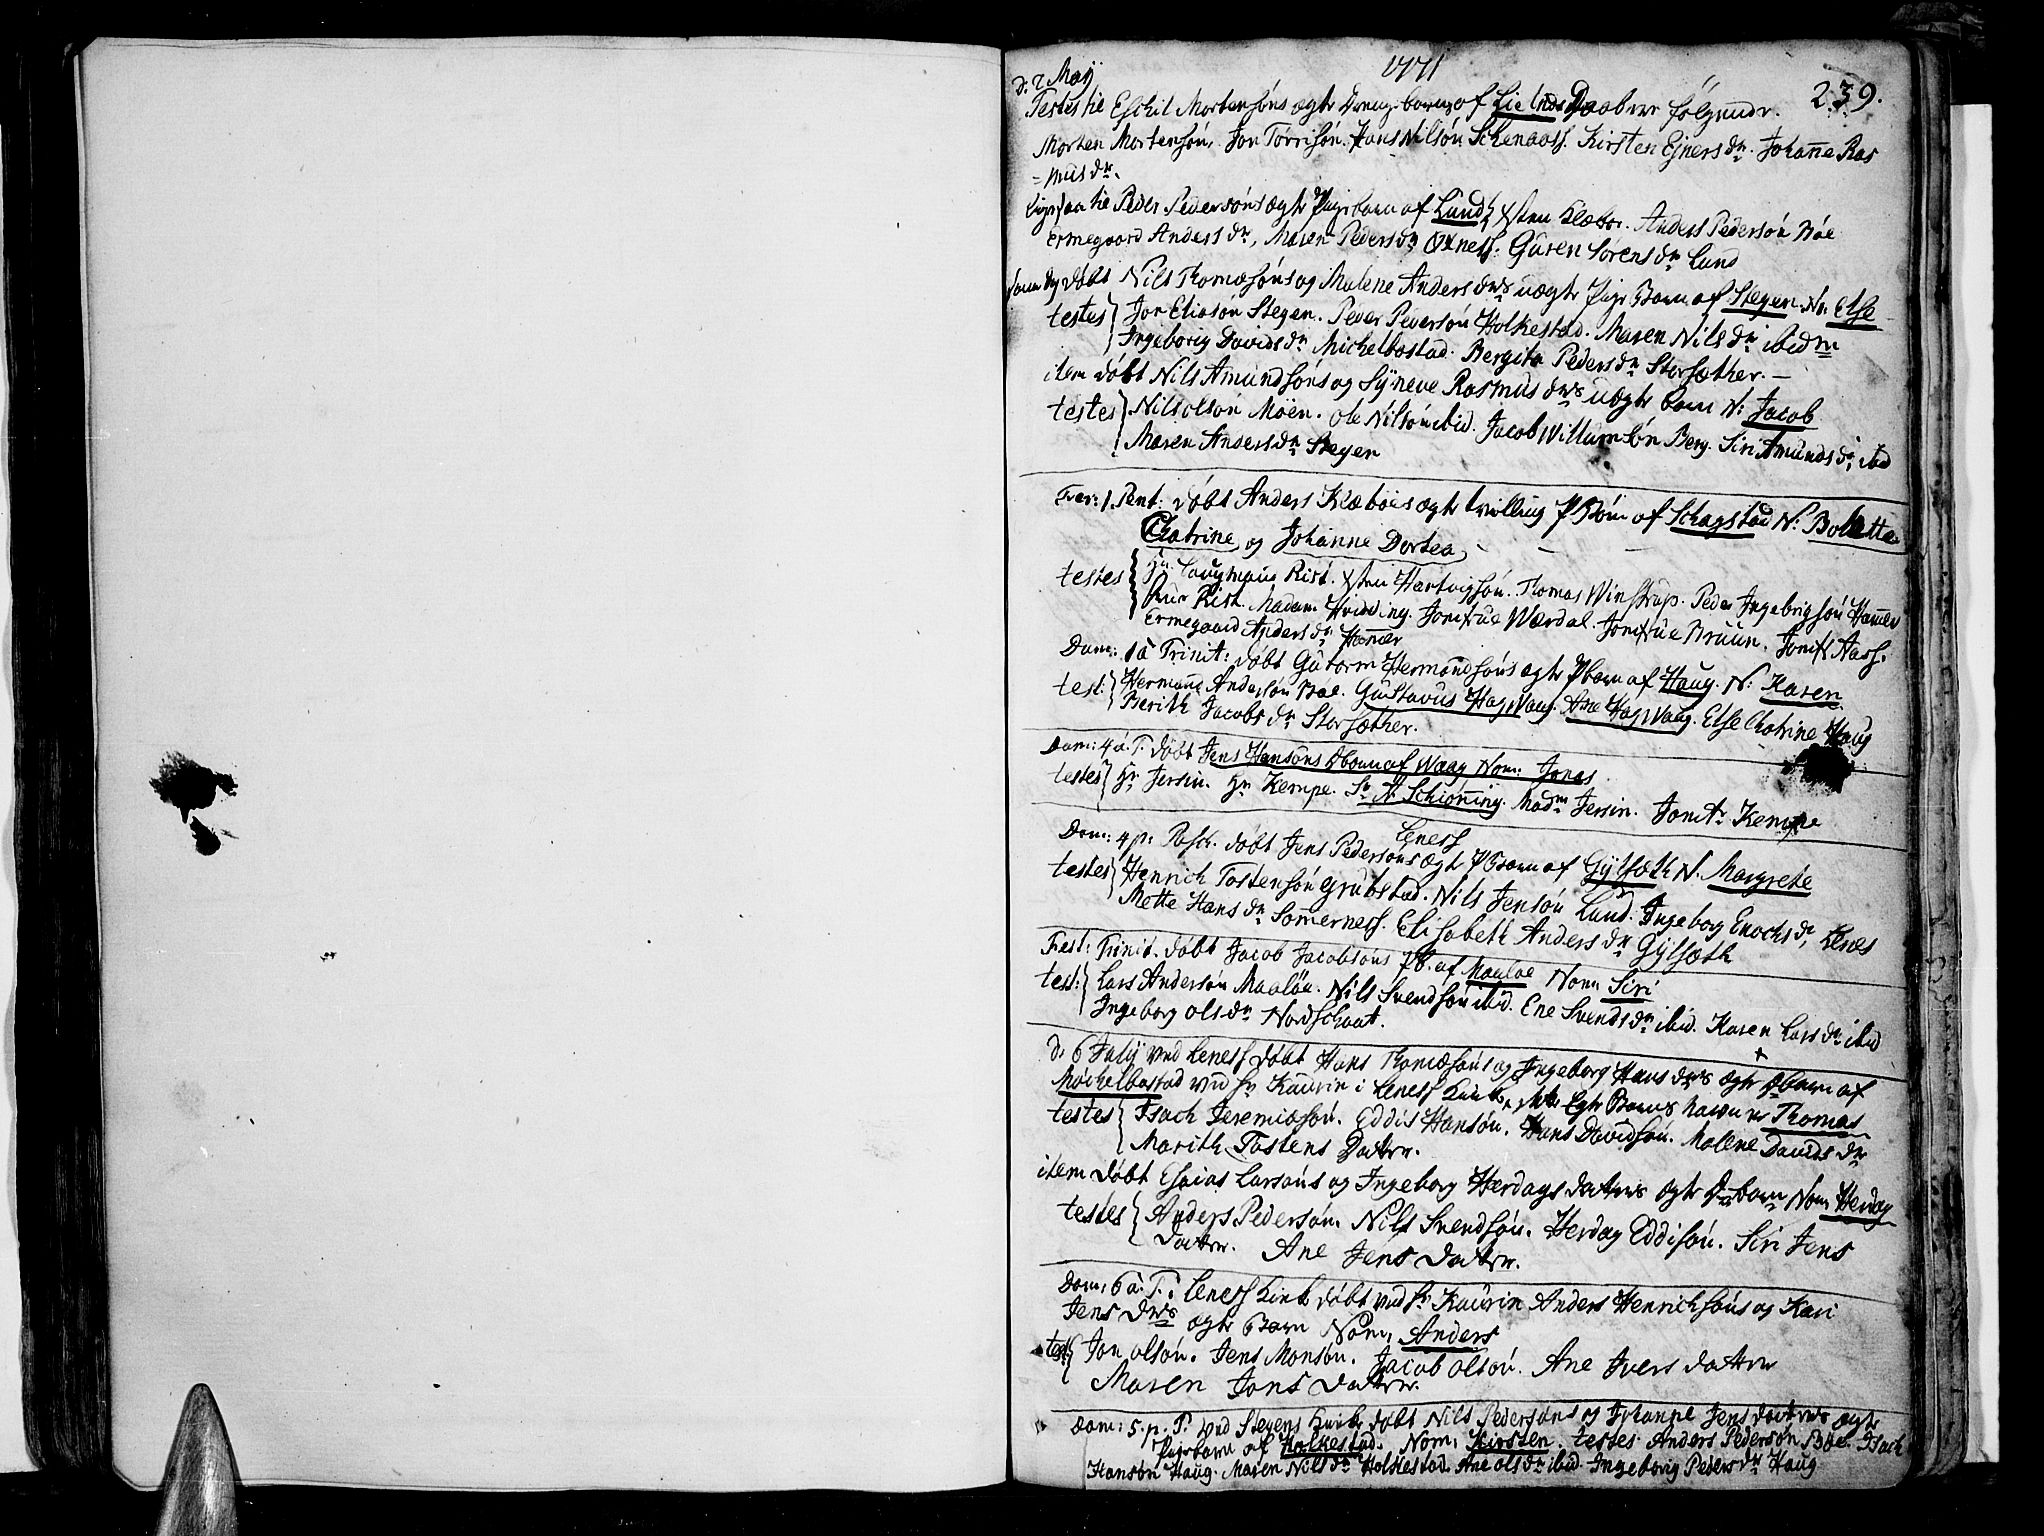 1771
239.
d. 2 Maÿ
Testes til Eschil Mortensøns ægte Drenge barn af Lie Daab ere følgende.
Morten Mortensøn, Jon Torrisøn. Hans Nilsøn Schenaas. Kirsten Ejnersdr. Johane Ras
=musdr.
til Peder Pedersøns ægte Pige barn af Lund Anders Pedersøn Bøe
Ermegaard Andersdr, Maren Pedersdr Oxnes: Guren Sørensdr Lund
døbt Nils Thomæsøns og Malene Andersdrs uægte Pige Barn af Stegen. N: Else
testes Jon Eliason Stegen. Peder Pedersøn Holkestad. Maren Nilsdr ibidm
Ingeborig Davidsdr Michelbostad. Bergita Pedersdr Storsæther. –
item døbt Nils Amundsøns og Sÿneve Rasmusdrs uægte barn N: Jacob
testes Nils olsøn Møen. Ole Nilsøn ibid. Jacob Willumsøn Berg. Siri Amundsdr ibid
Maren Andersdr Stegen
Fer: 1. Pent: døbt Anders Klæboes ægte tvilling P Børn af Schagstad N: Bolette
Chatrine og Johanne Dortea
testes Hr. Rist. Hartvigsøn. Thomas Winstrup. Peder Ingebrigsøn Hamer
Rist. Madam Hvidving. Jomfrue Wærdal. Jomfrue Bruun. Jomf. Aas.
Ermegaard Andersdr Hamer
Dom: 1 à Trinit: døbt Gutorm Hermandsøns ægte Pbarn af Haug. N: Karen
test: Herman Andersøn Bøe. Gustavus Hag Waag. Ane Hag Waag. Else Chatrine Haug
Berith Jacobsdr Storsæther.
Dom: 4 à T. døbt Jens Hansøns Dbarn af Waag Nom: Jonas
testes Hr Jersin. Hr Kempe. Sr A. Schiønning. Madm Jersin. Jomfr Kempe
Leness
Dom: 4 p: Pasch. døbt Jens Pedersøns ægte P Barn af Gÿlseth N: Margrete
testes Henrich Tostensøn Grubstad. Nils Jensøn Lund. Ingeborg Enochsdr Lenæs
Mette Hansdr Somerness. Elisabeth Andersdr Gÿlsæth
Fest: Trinit. døbt Jacob Jacobsøns P B. af Maaløe Nom: Siri
test: Lars Andersøn Maaløe. Nils Svendsøn ibid. Ene Svendsdr ibid. Karen Larsdr ibid
Ingeborg Olsdr Nordschaat.
d. 6 Julÿ ved Leness døbt Hans Thomæsøns og Ingeborg Hansdrs ægte Dbarn af
Michelbostad ved Hr Kaurin i Leness Kirke, Barns navn er Thomas
testes Isach Jeremiæsøn. Eddis Hansøn. Hans Davidsøn. Malene Davidsdr
Marith Tostens Datter.
item døbt Esaias Larsøns og Ingeborg Herdags datters ægte D-barn Nom: Herdag
testes Anders Pedersøn. Nils Svendsøn. Herdag Eddisøn. Siri Jens
Datter. Ane Jens Datter.
Dom: 6 à T. i Leness Kirke døbt ved Hr Kaurin Anders Henrichsøns og Kari
Jensdrs ægte Barn Nom: Anders
test Jon olsøn. Jens Monsøn. Jacob olsøn. Ane Ivers datter
Maren Jons Datter.
Dom: 5. p. T. ved Stegens Kirke døbt Nils Pedersøns og Johanne Jensdatters ægte
Pige barn af Holkestad. Nom: Kirsten. testes Anders Pedersøn Bøe. Isach
Hansøn Haug. Maren Nilsdr Holkestad. Ane olsdr ibid. Ingeborig Pedersdr Haug